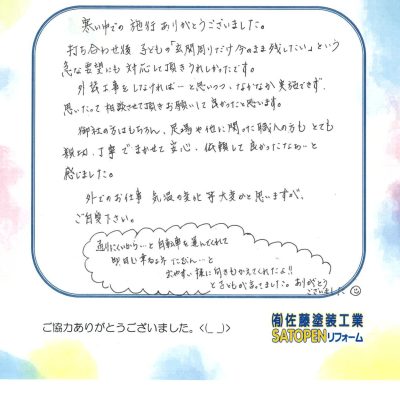 寒い中での施行ありがとうございました。
打ち合わせ後 子どもの「玄関周りだけ今のまま残したい」という
急な要望にも 対応して頂きうれしかったです。
外装工事をしなければ…と思いつつ、なかなか実施できず、
思いたって相談させて頂きお願いして良かったと思います。
御社の方はもちろん、足場や他に関った職人の方も とても
親切、丁寧で まかせて安心、依頼して良かったなぁ…と
感じました。
外でのお仕事 気温の変化 等 大変かと思いますが、
ご自愛下さい。
通りにくいから…と自転車を運んでくれて
明日も来るよう
出やすい様に向きもかえてくれたよ!!
と子どもが言ってました。ありがとう
ございました
ご協力ありがとうございました。<(_ _)>
(有)佐藤塗装工業
SATOPENリフォーム